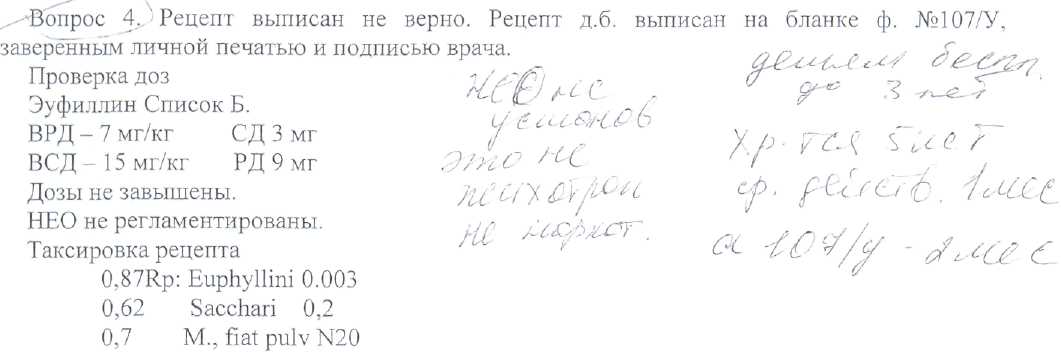 Вопрос 4. Рецепт выписан не верно. Рецепт д.б. выписан на бланке ф. №107/У,
заверенным личной печатью и подписью врача.
Проверка доз
Эуфиллин Список Б.
ВРД – 7 мг/кг СД 3 мг
ВСД – 15 мг/кг РД 9 мг
Дозы не завышены.
НЕО не регламентированы.
Таксировка рецепта
0,87Rp: Euphyllini 0.003
0,62 Sacchari 0,2
0,7 M., fiat pulv N20
НЕО не
установ
это не
психотроп
не наркот.
детям беспл.
до 3 лет
хр-тся 5 лет
ср. действ. 1 мес
а 107/у - 2 мес